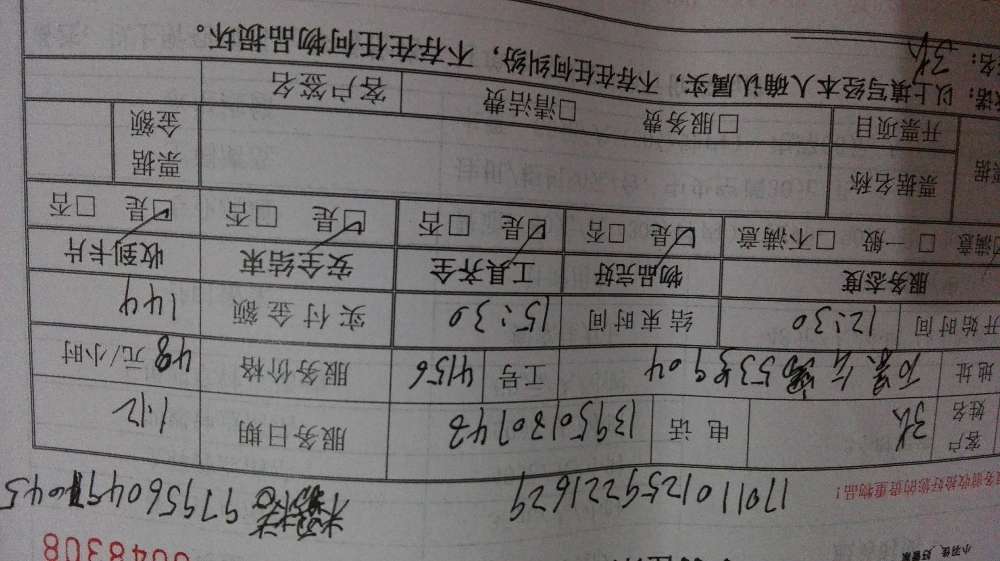 小羽佳，好管家
0048308
务前收拾好您的贵重物品！
17011012592216629
客户姓名 张 电话 13950130743 服务日期 1.12
地址 533 904 工号 4156 服务价格 48 元/小时
开始时间 12:30 结束时间 15:30 实付金额 144
服务态度 物品完好 工具齐全 安全结束 收到卡片
满意 □一般 □不满意 □是 □否 □是 □否 □是 □否 □是 □否
票据名称 票据金额
开票项目 □服务费 □清洁费
诺：以上填写经本人确认属实，不存在任何纠纷，不存在任何物品损坏。 客户签名
名： 张